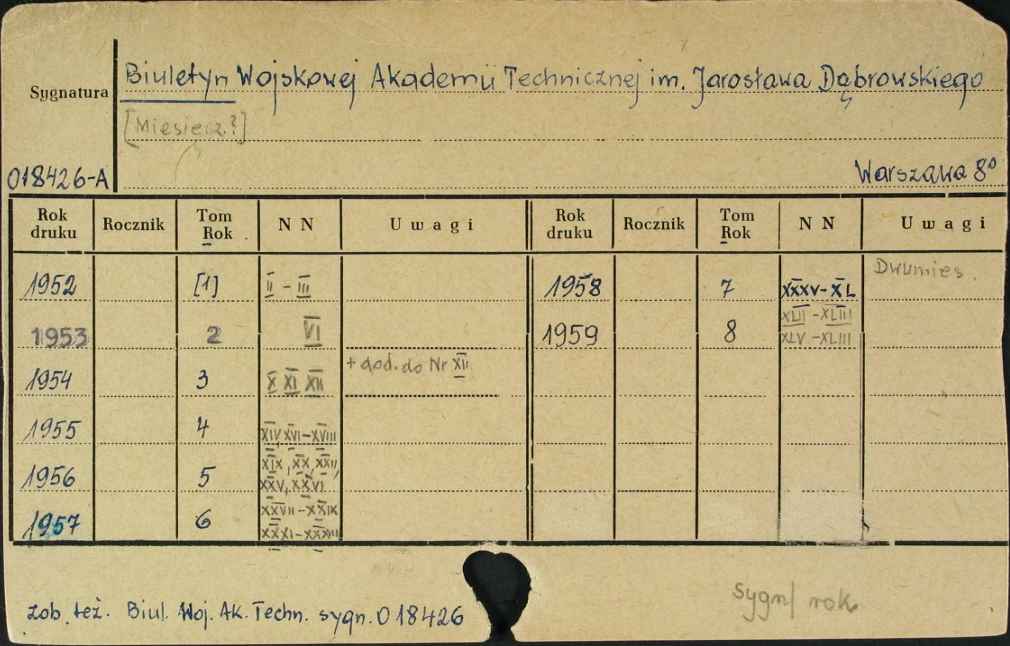 Biuletyn Wojskowej Akademii Technicznej im. Jarosława Dąbrowskiego
Sygnatura
[Miesięcz.?]
018426-A
Warszawa 8°
Rok druku Rocznik Tom Rok NN Uwagi Rok druku Rocznik Tom Rok NN Uwagi
1952 [1] II - III 1958 7 XXXV-XL Dwumies.
1953 2 VI 1959 8 XLII-XLIII XLV-XLIII
1954 3 X XI XII + dod. do Nr XII
1955 4 XIV, XVI-XVIII
1956 5 XIX, XX, XXII, XXV, XXVI
1957 6 XXVII-XXIX XXXI-XXXIII
zob. też. Biul. Woj. Ak. Techn. sygn. 018426
sygn/ rok